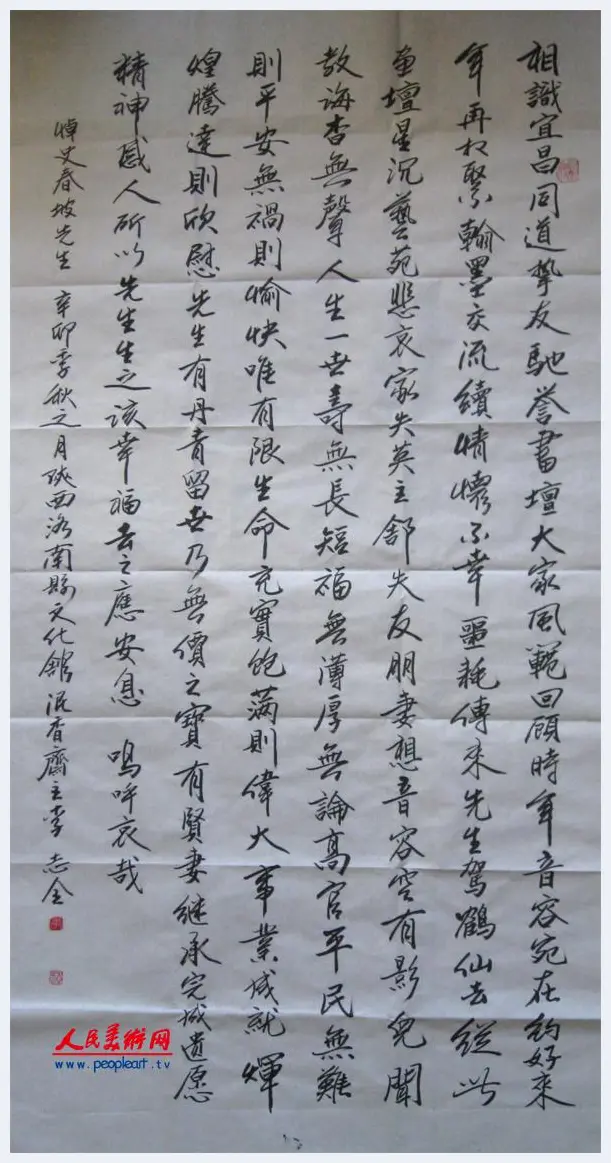 相識宜昌同道摯友馳譽書壇大家風範回顧時年音容宛在約好來
年再叙緊翰墨交流續情懷不幸噩耗傳來先生駕鶴仙去從此
畫壇星沉藝苑悲哀家失英主舘失友朋妻想音容空有影兒聞
教誨杳無聲人生一世壽無長短福無薄厚無論高官平民無難
則平安無禍則愉快唯有限生命充實飽满則偉大事業成就輝
煌騰達則欣慰先生有丹青留世乃無價之寶有賢妻继承完成遺愿
精神感人所以先生生之該幸福去之應安息嗚呼哀哉
悼史春坡先生辛卯季秋之月陝西洛南縣文化舘混香齋主李志全
人民美術网
www.peopleart.tv